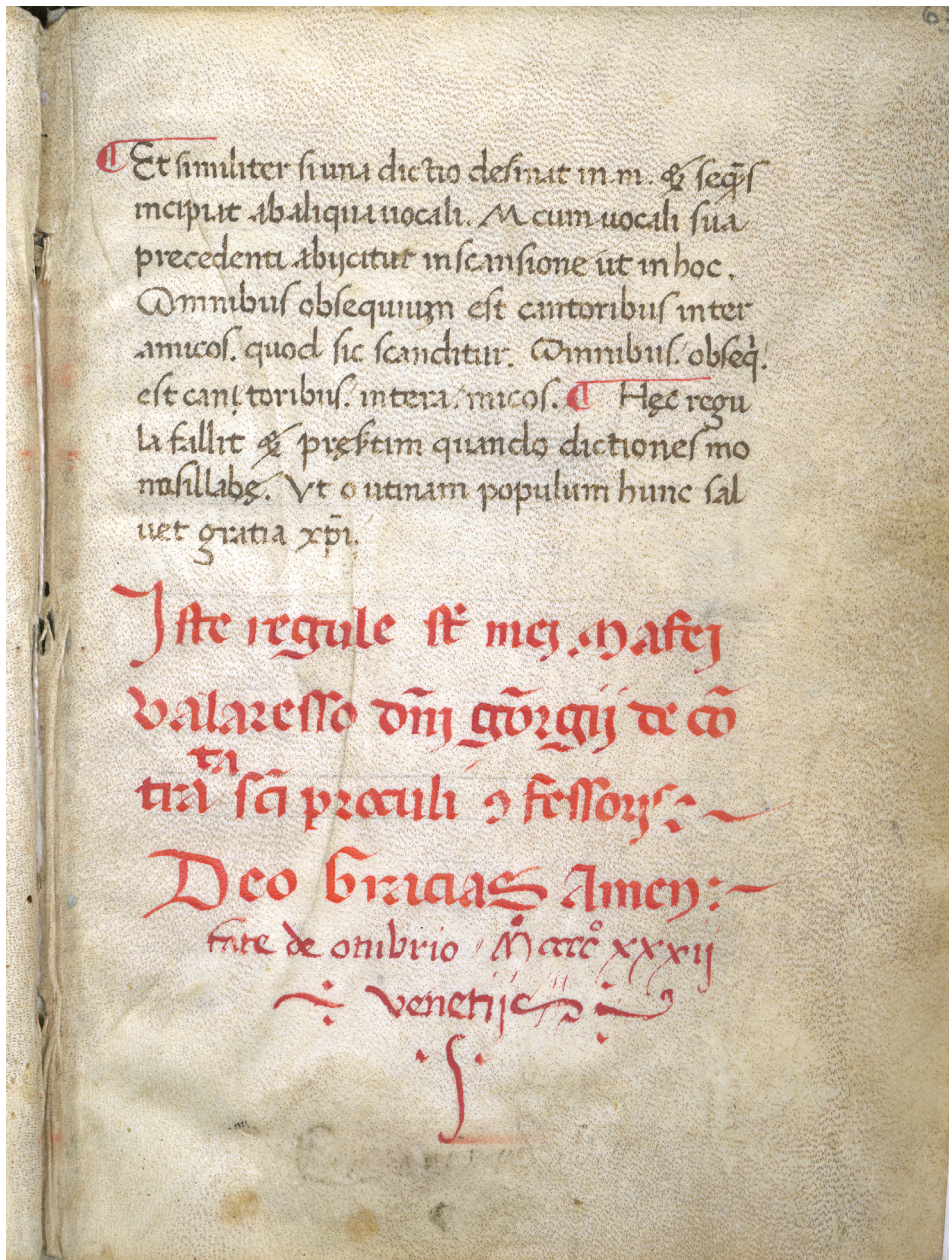 ¶ Et similiter si una dictio desinat in .m. & seq̄s
incipiat ab aliqua uocali. M cum uocali sua
precedenti abijcitur in scansione ut in hoc.
Omnibus obsequium est cantoribus inter
amicos. quod sic scanditur. Omnibus. obseq̄.
est can. toribus. intera. micos. ¶ Hęc regu
la fallit & pręsertim quando dictiones mo
nosillabę. Vt o utinam populum hunc sal
uet gratia xp̄i.
Iste regule st̄ mei Mafei
valaresso dn̄i geōrgij de cō
trata sc̄i proculi ꝯfessoris
Deo Gracias Amen:~
fate de otubrio M̊ cccc° xxxij
venetijs